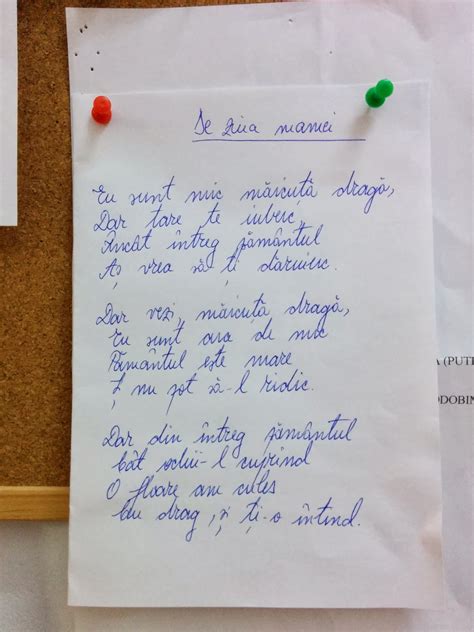 De ziua mamei
Eu sunt mic măicuță dragă,
Dar tare te iubesc,
Încât întreg pământul
Aș vrea să ți dăruiesc.
Dar vezi, măicuță dragă,
Eu sunt așa de mic
Pământul este mare
Și nu pot să-l ridic.
Dar din întreg pământul
Cât ochii-l cuprind
O floare am cules
Cu drag, și ți-o întind.
A (PUTE
ODOBIN